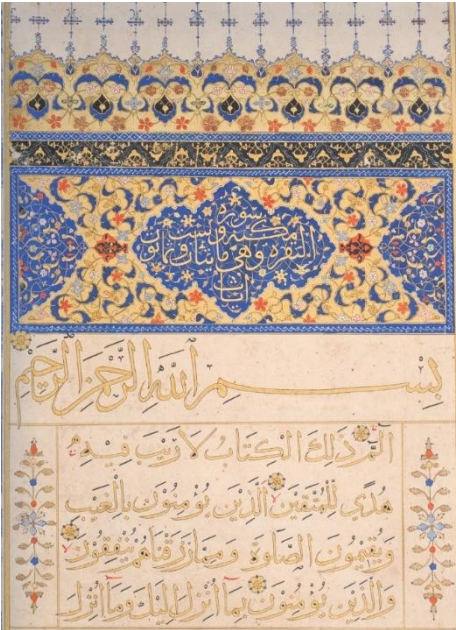 سورة
البقره وهى مايتان وثمانون
ايات
بِسْمِ اللهِ الرَّحْمنِ الرَّحِيْمِ
الٓمٓ ذلِكَ الكِتَابُ لَا رَيْبَ فِيْهِ
هُدًي لِلْمُتَّقِينَ الَّذِينَ يُؤمِنُونَ بِالْغَيْبِ
وَيُقِيمُونَ الصَّلوةَ وَمِمَّا رَزَقْنَاهُمْ يُنْفِقُونَ
وَالَّذِينَ يُؤمِنُونَ بِمَا اُنْزِلَ اِلَيْكَ وَمَا اُنْزِلَ